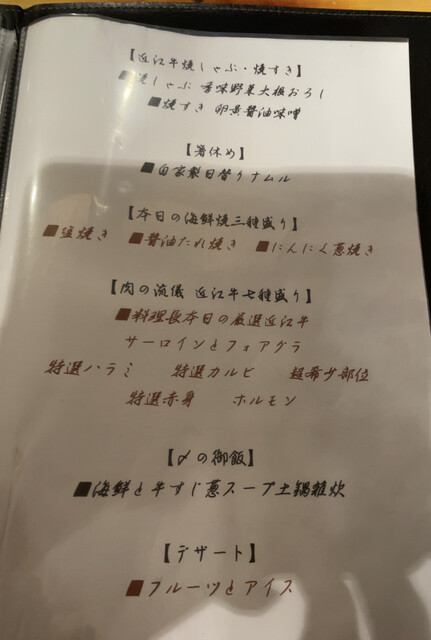 【近江牛焼しゃぶ・焼すき】
■焼しゃぶ 香味野菜大根おろし
■焼すき 卵黄醤油味噌
【箸休め】
■自家製日替りナムル
【本日の海鮮焼三種盛り】
■塩焼き ■醤油たれ焼き ■にんにく葱焼き
【肉の流儀 近江牛七種盛り】
■料理長本日の厳選近江牛
サーロインとフォアグラ
特選ハラミ 特選カルビ 超希少部位
特選赤身 ホルモン
【〆の御飯】
■海鮮と牛すじ葱スープ土鍋雑炊
【デザート】
■フルーツとアイス